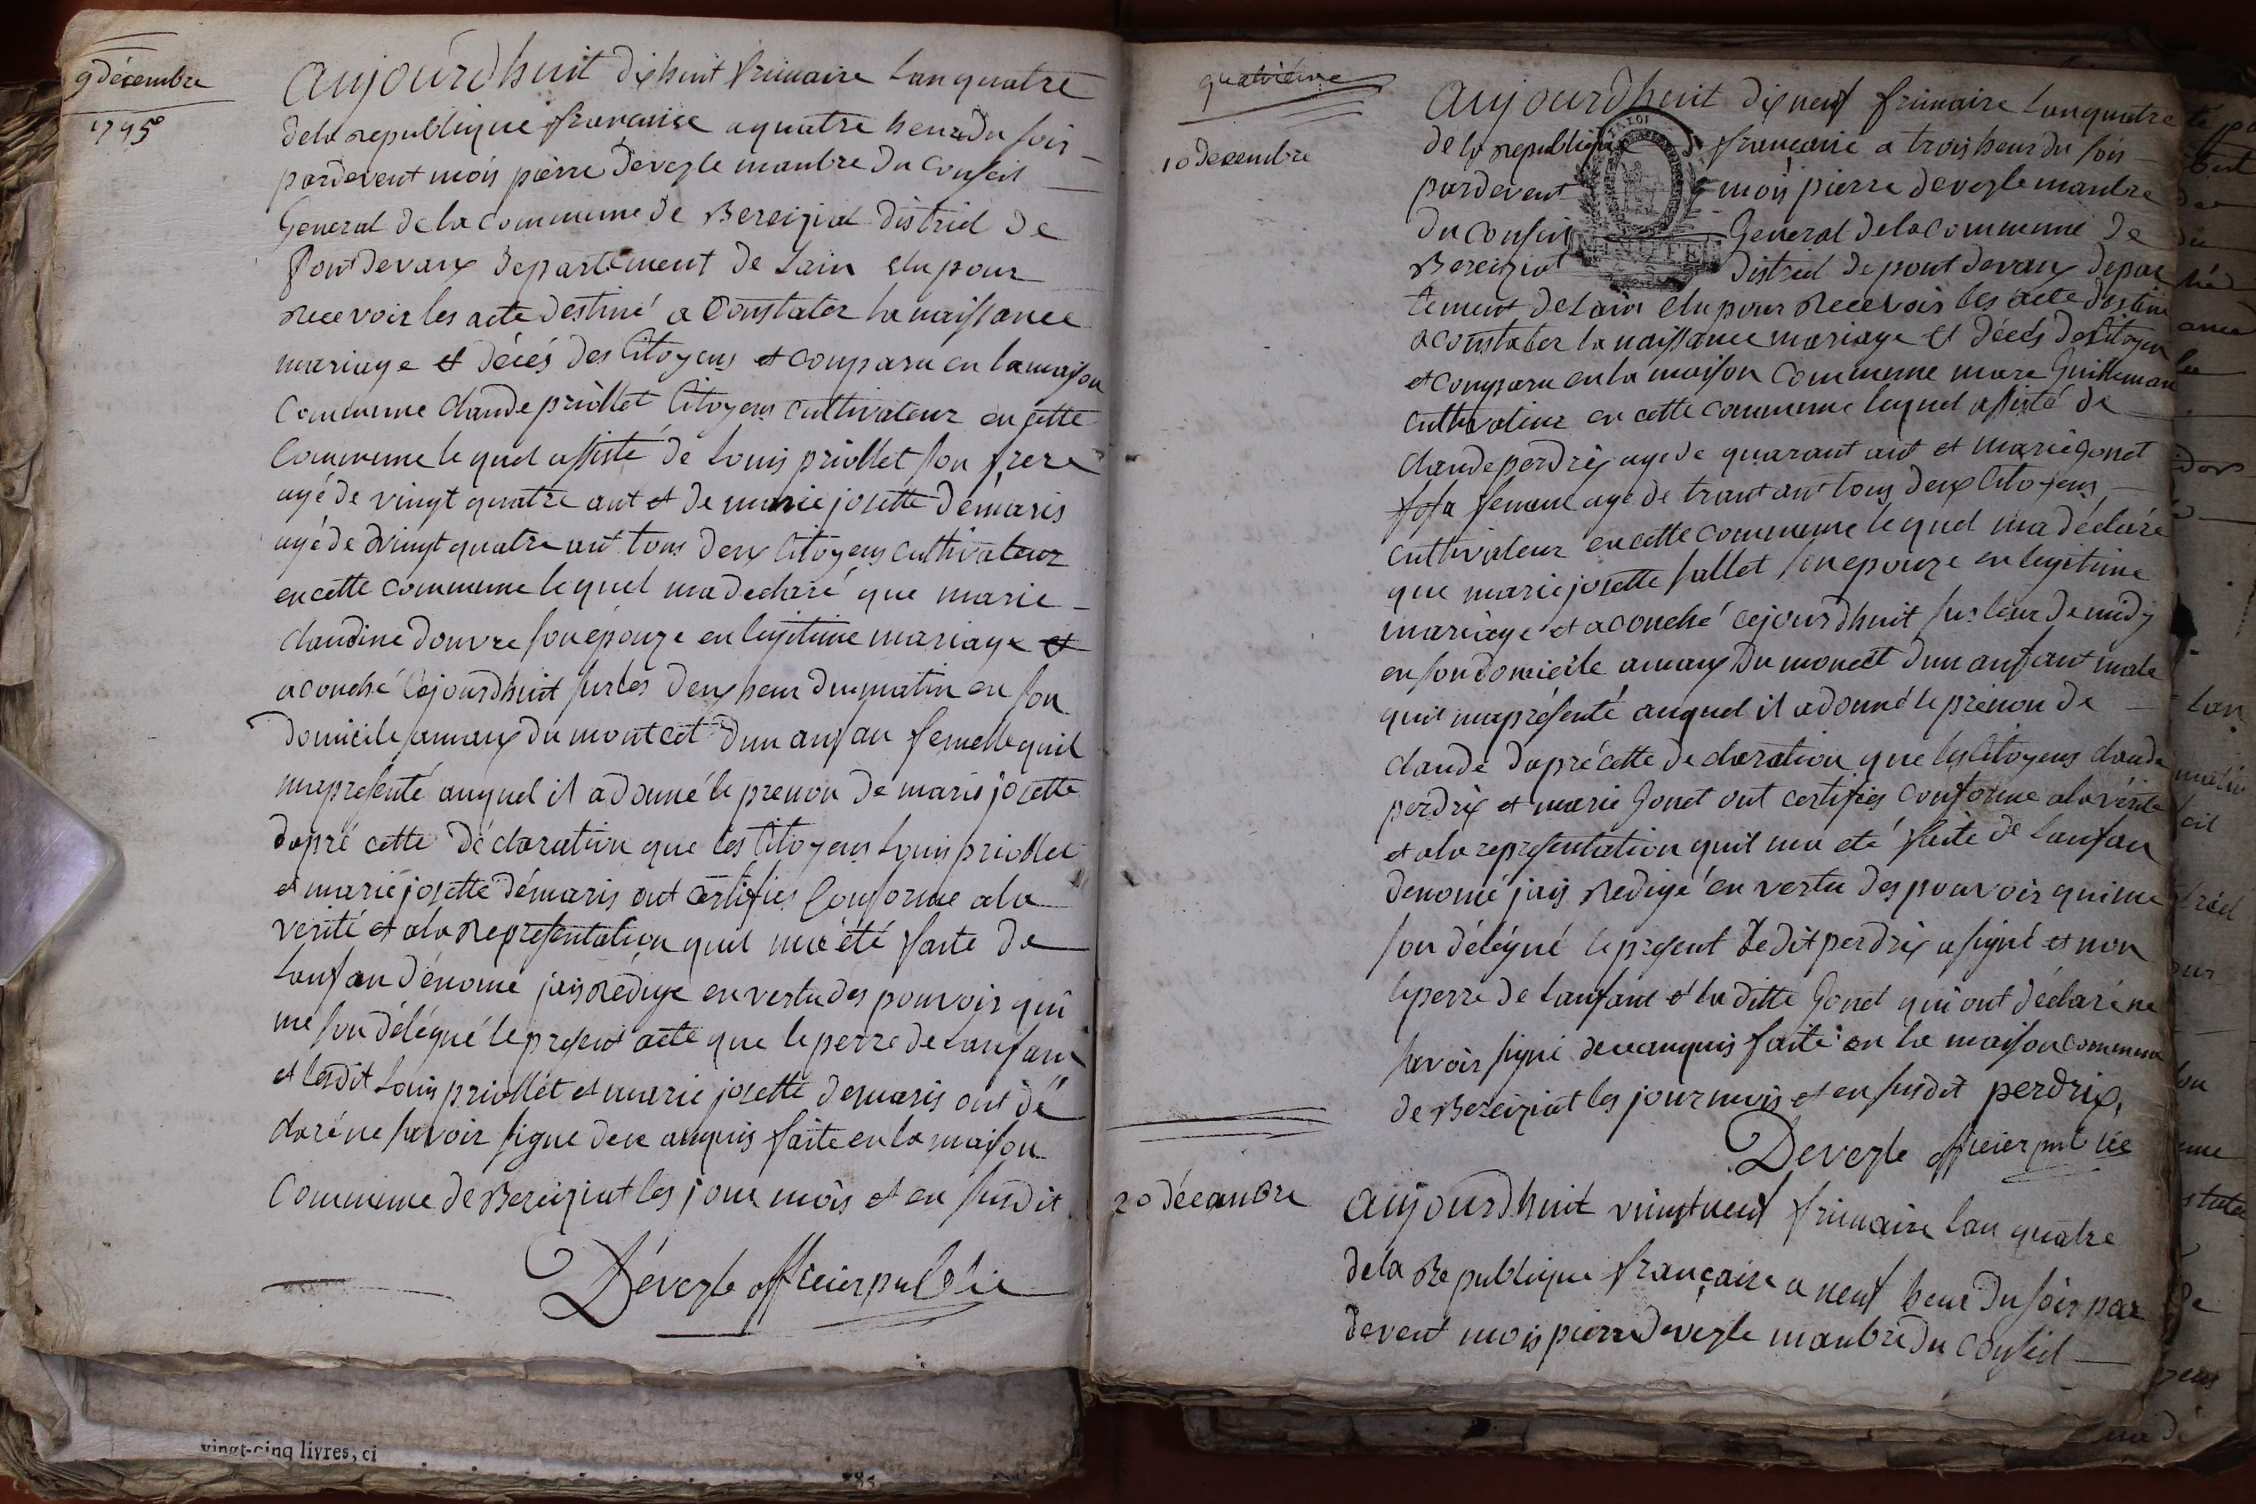 9 décembre
1795
aujourdhuit dixhuit frimaire lanquatre
dela republique francaise a quatre heure du soir
pardevent mois pierre devegle manbre du conseil
General de la commune de Bereiziat district de
pontdevaux departement de Lain elu pour
recevoir les acte destiné a constater la naissance
mariage et décés des Citoyens et comparu en la maison
commune claude priollet Citoyens cultivateur en cette
commune lequel assisté de Louis priollet son frere
agé de vingt quatre ant et de marie josette démaris
agé de vingt quatre ant tous deux Citoyens cultivateur
en cette commune lequel ma declaré que marie
claudine douvre son épouze en legitime mariage et
acouché cejourdhuit sur les deux heur du matin en son
domicile amaux du montcet dun anfan femelle quil
ma presenté auquel il a donné le prenon de marie josette
dapré cette déclaration que les Citoyens Louis priollet
et marie josette démaris ont certifies conforme ala
verité et ala representation quil ma été faite de
lanfan dénomé jais redige en vertu des pouvoir qui
me son délégué le present acte que le perre de lanfant
et ledit Louis priollet et marie josette demaris ont dé
claré ne savoir signe dece anquis faite en la maison
commune de Bereiziat les jour mois et en susdit
Dévegle officier public
vingt-cinq livres, ci
quatriéme
10 decembre
aujourdhuit dixneuf frimaire lanquatre
de la republique francaise a trois heur du soir
pardevent mois pierre devegle manbre
du conseil General dela commune de
Bereiziat district de pont devaux depar
tement de Lain elu pour recevoir les acte destiné
a constater la naissance mariage et décés des Citoyen
et comparu en la maison commune marc Guilleman
cultivateur en cette commune lequel assisté de
claude perdrix age de quarant ant et marie gonet
sa femme age de trant ant tous deux Citoyens
cultivateur en cette commune lequel ma déclaré
que marie josette sallet son epouze en legitime
mariage et acouché cejourdhuit sur leur de midy
en son domicile amaux du moncet dun anfant male
quil ma présenté auquel il a donné le prénon de
claude dapré cette declaration que les Citoyens claude
perdrix et marie Gonet ont certifies conforme ala vérité
et ala representation quil ma eté faite de lanfan
denomé jais redigé en vertu des pouvoir qui me
son délégué le present ledit perdrix a signé et non
le perre de lanfant et la ditte Gonet qui ont déclaré ne
savoir signé de ce anquis faite en la maison commune
de Bereiziat les jour mois et en susdit perdrix
Devegle officier public
20 décanbre
aujourdhuit vingtneuf frimaire lan quatre
dela Republique françaire a neuf heur du soir par
devent mois pierre devegle manbre du conseil